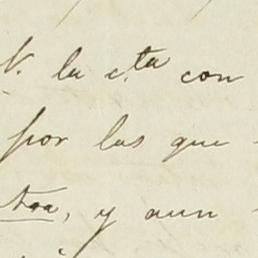 V. la c.ta con
por las que
tra, y aun